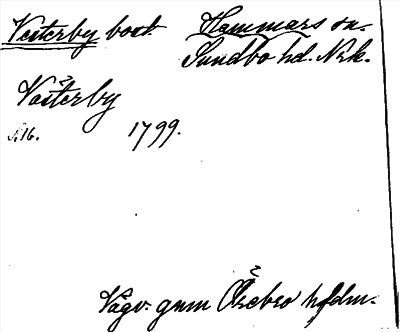 Vesterby bost. Hammars sn.
Sundbo hd. Nrk.
Västerby
s. 16. 1799.
Vägv. gnm Örebro hfdm.